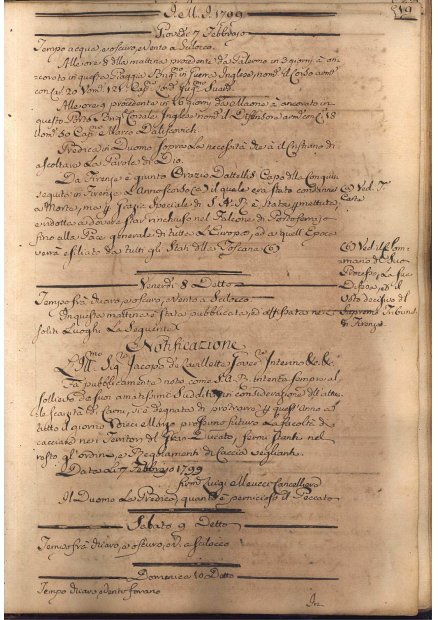 I.e M.I. 1799
19
Giovedi 7 Febbrajo
Tempo acqua, e oscuro, e vento a Scilocco.
All'ore 8 della mattina procedente da Palermo in giorni è an-
corato in questa Piaggia Brig.no da Guerra Inglese, nom.o il Corso arm.o
con Ca.i 20 Uom.i 121 Cap.o
All'ore procedente in 16 giorni da Maone è ancorato in
questo Porto Brig.o Corsale Inglese nom.o il Difensore arm.o con C. 18
Uom.i 50 Cap.o Marco
Predica in Duomo sopra la necessità che à il Cristiano di
ascoltare la Parola di Dio.
Da Firenze è giunto Orazio Dattellis Capo della
seguita in Firenze l'anno scorso (a) il quale era stato condannato
a Morte, ma p. grazia speciale di S.A.R. è stata
e ridotta a dovere star rinchiuso nel Falcone di Portoferrajo
fino alla Pace generale di tutta l'Europa, ed a quell'Epoca
verrà esiliato da tutti gli Stati della Toscana (b)
(a) Ved.
Carte
(b) Ved. al
mano del suo
Processo, la sua
Difesa, ed il
Voto decisivo del
Supremo Tribun.
di Firenze
Venerdi 8 Detto
Tempo frà chiaro, e oscuro, e vento a Scilocco
In questa mattina è stata pubblicata, ed affissata nei
soliti Luoghi la Seguente
Notificazione
L'Ill.mo Sig.re Jacopo de Lavillette Gover.re Interino &c. &c.
Fa pubblicamente noto come S.A.R. intenta sempre al
sollievo de suoi amatissimi Sudditi, in considerazione dell'attua-
le scarsità di Carni, si è degnata di prorogare p. quest'Anno a
tutto il giorno dieci Marzo prossimo futuro la facoltà di
cacciare nei Territori del Gran-Ducato, fermi stanti nel
resto gl'ordini, e Regolamenti di Caccia veglianti.
Data li 7 Febbrajo 1799
firm. Luigi Meucci Cancelliere
In Duomo la Predica, quanto è pernicioso il Peccato
Sabato 9 Detto
Tempo frà chiaro, e oscuro, e V. a Scilocco
Domenica 10 Detto
Tempo chiaro e vento forano
In